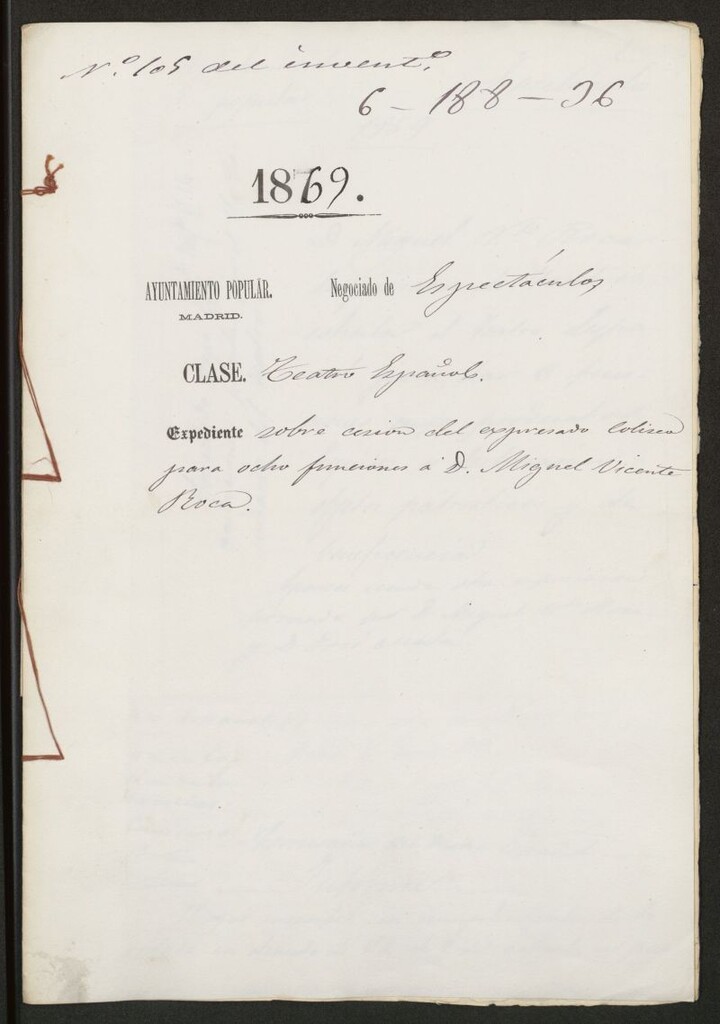 Nº 105 del inventº
6-188-36
1869.
AYUNTAMIENTO POPULAR. Negociado de Espectáculos
MADRID.
CLASE. Teatro Español.
Expediente sobre cesion del expresado Coliseo
para ocho funciones á D. Miguel Vicente
Roca.